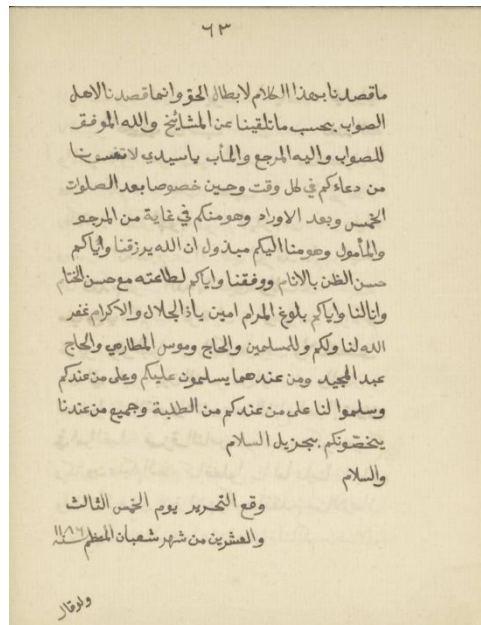 ٦٣
ما قصدنا بهذا الكلام لابطال الحق وانما قصدنا لاهل
الصواب بحسب ما تلقينا عن المشائخ والله الموفق
للصواب واليه المرجع والمآب يا سيدي لا تنسونا
من دعاءكم في كل وقت وحين خصوصا بعد الصلوات
الخمس وبعد الاوراد وهو منكم في غاية من المرجو
والمأمول وهو منا اليكم مبذول ان الله يرزقنا واياكم
حسن الظن بالانام ووفقنا واياكم لطاعته مع حسن الختام
وانالنا واياكم بلوغ المرام امين ياذ الجلال والاكرام غفر
الله لنا ولكم وللمسلمين والحاج وموس المطارحي والحاج
عبد المجيد ومن عندهما يسلمون عليكم وعلى من عندكم
وسلموا لنا على من عندكم من الطلبة وجميع من عندنا
يخصونكم بجزيل السلام
والسلام
وقع التحرير يوم الخمس الثالث
والعشرين من شهر شعبان المعظم سنة ١١٨٦
ولوقال